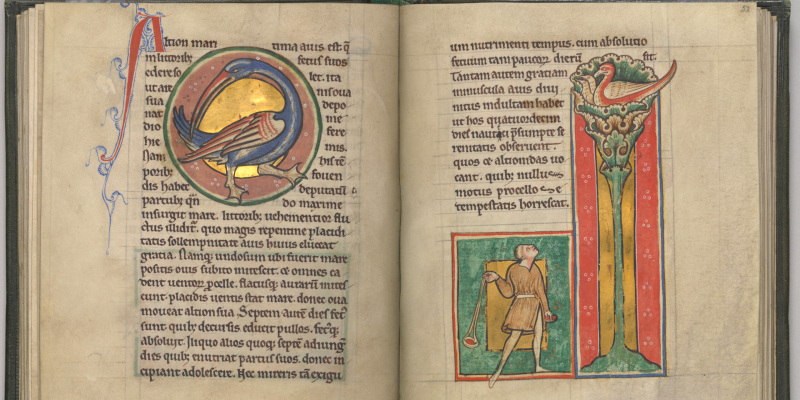 Altion mari tima auis est q̄
in litorib; fetus suos
edere so let. ita
ut are in soua
sua depo
nat ine
dio fere
hie mis.
Nam his tē
porib; fouen
dis habet deputatū
partub; qn̄ do maxime
insurgit mare. litorib; uehementior flu
ctus illidit᷑. quo magis repentine placidi
tatis sollempnitate auis huius eluceat
gratia. Namq; undosum ubi fuerit mare
positis ouis subito mitescit. et omnes ca
dent uentor᷑ pcelle. flatusq; aurarū mites
cunt. placidis uentis stat mare. donec oua
moueat altion sua. Septem autē dies fet᷑
sunt quib; decursis educit pullos. fetꝰq;
absoluit. Ilico alios quoq; septē adiungit
dies quib; enutriat partus suos. donec in
cipiant adolescere. Nec mireris tā exigu
um nutrimenti tempus. cum absolutio
fetuum tam paucor᷑ dierū sit.
Tantam autem gratiam
minuscula auis diui
nitus indultam habet
ut hos quatuordecim
dies nautici p̄sumpte se
renitatis obseruent.
quos et altionidas uo
cant. quib; nullus
motus procellose
tempestatis horrescat.